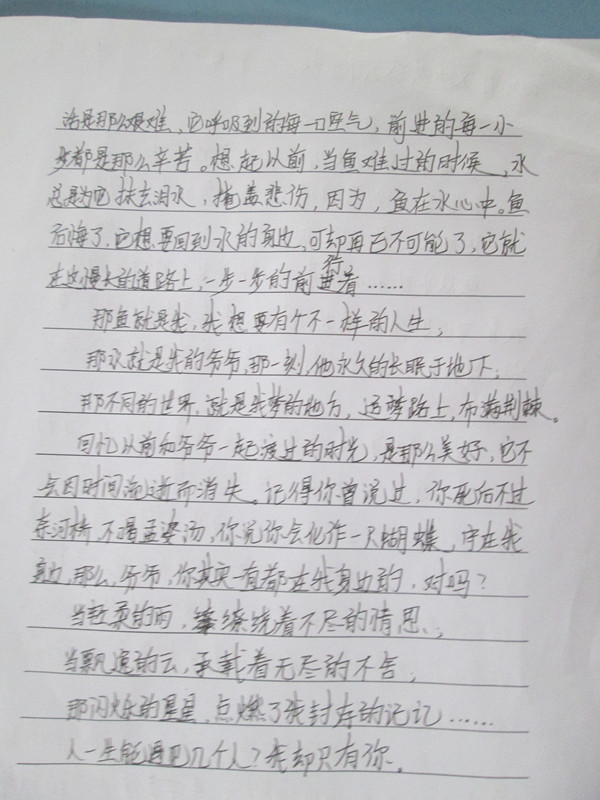 活是那么艰难,它呼吸到的每一口空气,前进的每一小
步都是那么辛苦。想起以前,当鱼难过的时候,水
总是为它抹去泪水,掩盖悲伤,因为,鱼在水心中。鱼
后悔了,它想要回到水的身边,可却再已不可能了,它就
在这漫长的道路上,一步一步的前行着……
那鱼就是我,我想要有个不一样的人生;
那水就是我的爷爷,那一刻,他永久的长眠于地下;
那不同的世界,就是我梦的地方,追梦路上,布满荆棘。
回忆以前和爷爷一起渡过的时光,是那么美好,它不
会因时间流逝而消失。记得你曾说过,你死后不过
奈河桥,不喝孟婆汤,你说你会化作一只蝴蝶,守在我
身边,那么,爷爷,你其实一直都在我身边的,对吗?
当轻柔的雨,缭绕着不尽的情思;
当飘逸的云,承载着无尽的不舍;
那闪烁的星星,点燃了我封存的记忆……
人一生能遇见几个人?我却只有你。